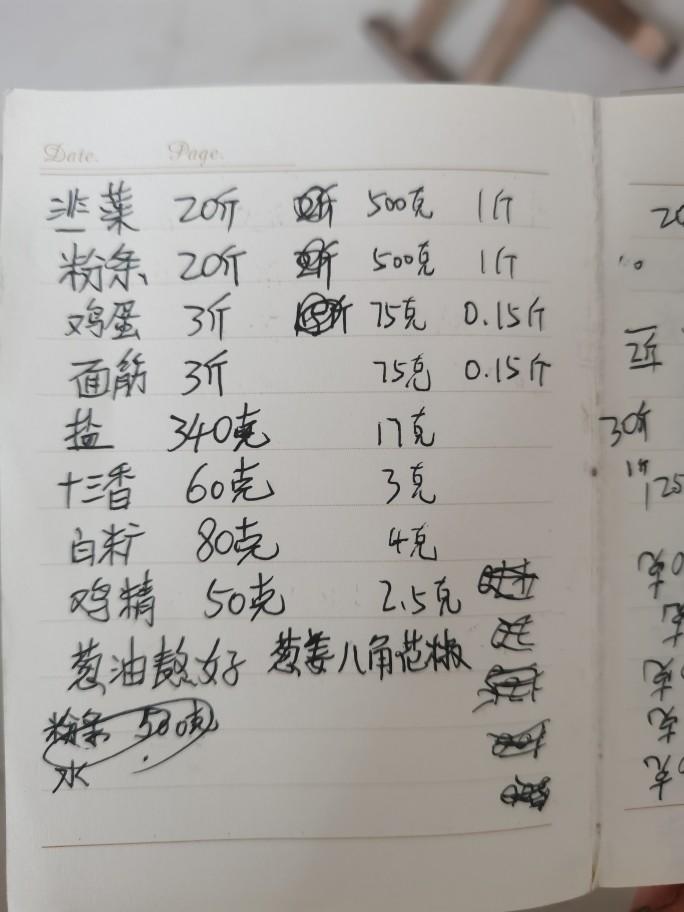 Date. Page.
韭菜 20斤 500克 1斤
粉条 20斤 500克 1斤
鸡蛋 3斤 75克 0.15斤
面筋 3斤 75克 0.15斤
盐 340克 17克
十三香 60克 3克
白籵 80克 4克
鸡精 50克 2.5克
葱油熬好 葱姜八角花椒
粉条 500克
水
20
2斤
30斤
1斤
125
克
克
克
克
克